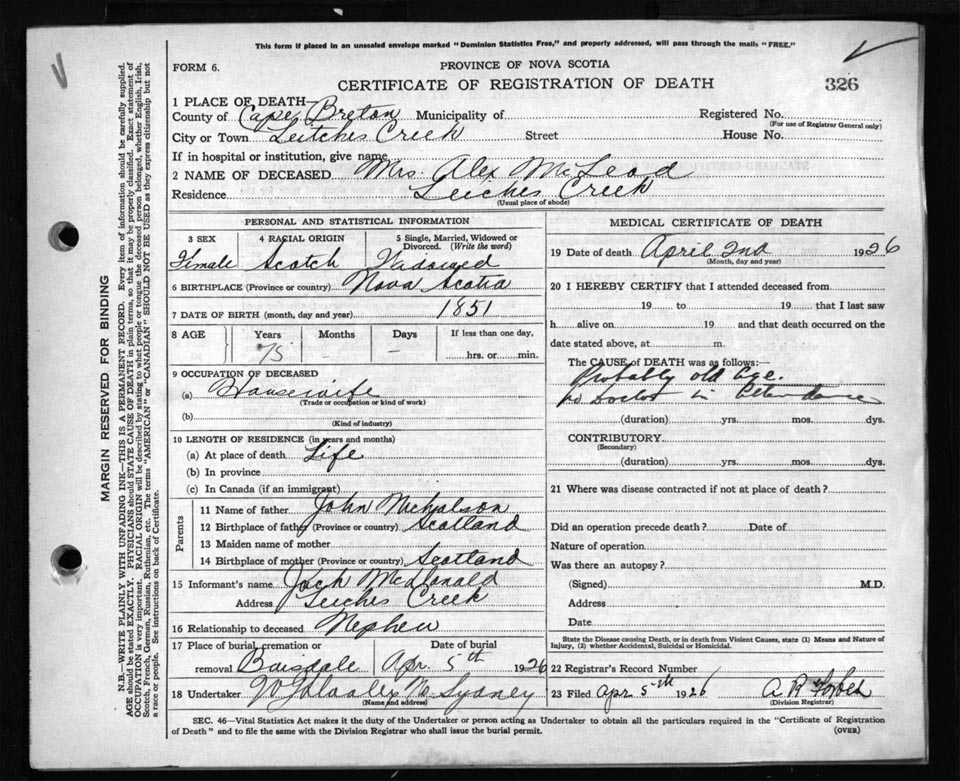 This form if placed in an unsealed envelope marked "Dominion Statistics Free," and properly addressed, will pass through the mails "FREE."
FORM 6.
PROVINCE OF NOVA SCOTIA
CERTIFICATE OF REGISTRATION OF DEATH
326
1 PLACE OF DEATH
County of Cape Breton Municipality of Registered No.
(For use of Registrar General only)
City or Town Leitches Creek Street House No.
If in hospital or institution, give name
2 NAME OF DECEASED Mrs. Alex McLeod
Residence Leiches Creek
(Usual place of abode)
PERSONAL AND STATISTICAL INFORMATION
3 SEX 4 RACIAL ORIGIN 5 Single, Married, Widowed or Divorced. (Write the word)
Female Scotch Widowed
6 BIRTHPLACE (Province or country) Nova Scotia
7 DATE OF BIRTH (month, day and year) 1851
8 AGE Years Months Days If less than one day,
75 - - hrs. or min.
9 OCCUPATION OF DECEASED
(a) Housewife
(Trade or occupation or kind of work)
(b)
(Kind of industry)
10 LENGTH OF RESIDENCE (in years and months)
(a) At place of death Life
(b) In province
(c) In Canada (if an immigrant)
Parents
11 Name of father John Nicholson
12 Birthplace of father (Province or country) Scotland
13 Maiden name of mother
14 Birthplace of mother (Province or country) Scotland
15 Informant's name Jack McDonald
Address Leiches Creek
16 Relationship to deceased Nephew
17 Place of burial, cremation or removal Date of burial
Boisdale Apr. 5th 1926
18 Undertaker No Sydney
(Name and address)
MEDICAL CERTIFICATE OF DEATH
19 Date of death April 2nd 1926
(Month, day and year)
20 I HEREBY CERTIFY that I attended deceased from
19 to 19 that I last saw
h alive on 19 and that death occurred on
date stated above, at m.
The CAUSE of DEATH was as follows:—
Probably old age.
no Doctor in Attendance
(duration) yrs. mos. dys.
CONTRIBUTORY
(Secondary)
(duration) yrs. mos. dys.
21 Where was disease contracted if not at place of death?
Did an operation precede death? Date of
Nature of operation
Was there an autopsy?
(Signed) M.D.
Address
Date
State the Disease causing Death, or in death from Violent Causes, state (1) Means and Nature of
Injury, (2) whether Accidental, Suicidal or Homicidal.
22 Registrar's Record Number
23 Filed Apr 5th 1926 A R Forbes
(Division Registrar)
SEC. 46—Vital Statistics Act makes it the duty of the Undertaker or person acting as Undertaker to obtain all the particulars required in the "Certificate of Registration
of Death" and to file the same with the Division Registrar who shall issue the burial permit.
(OVER)
MARGIN RESERVED FOR BINDING
N.B.—WRITE PLAINLY WITH UNFADING INK—THIS IS A PERMANENT RECORD. Every item of information should be carefully supplied.
AGE should be stated EXACTLY. PHYSICIANS should STATE CAUSE OF DEATH in plain terms, so that it may be properly classified. Exact statement of
OCCUPATION is very important. RACIAL ORIGIN will be described by stating to what people or tongue the deceased person belonged, whether English, Irish,
Scotch, French, German, Russian, Ruthenian, etc. The terms "AMERICAN" or "CANADIAN" SHOULD NOT BE USED as they express citizenship but not
a race or people. See instructions on back of Certificate.